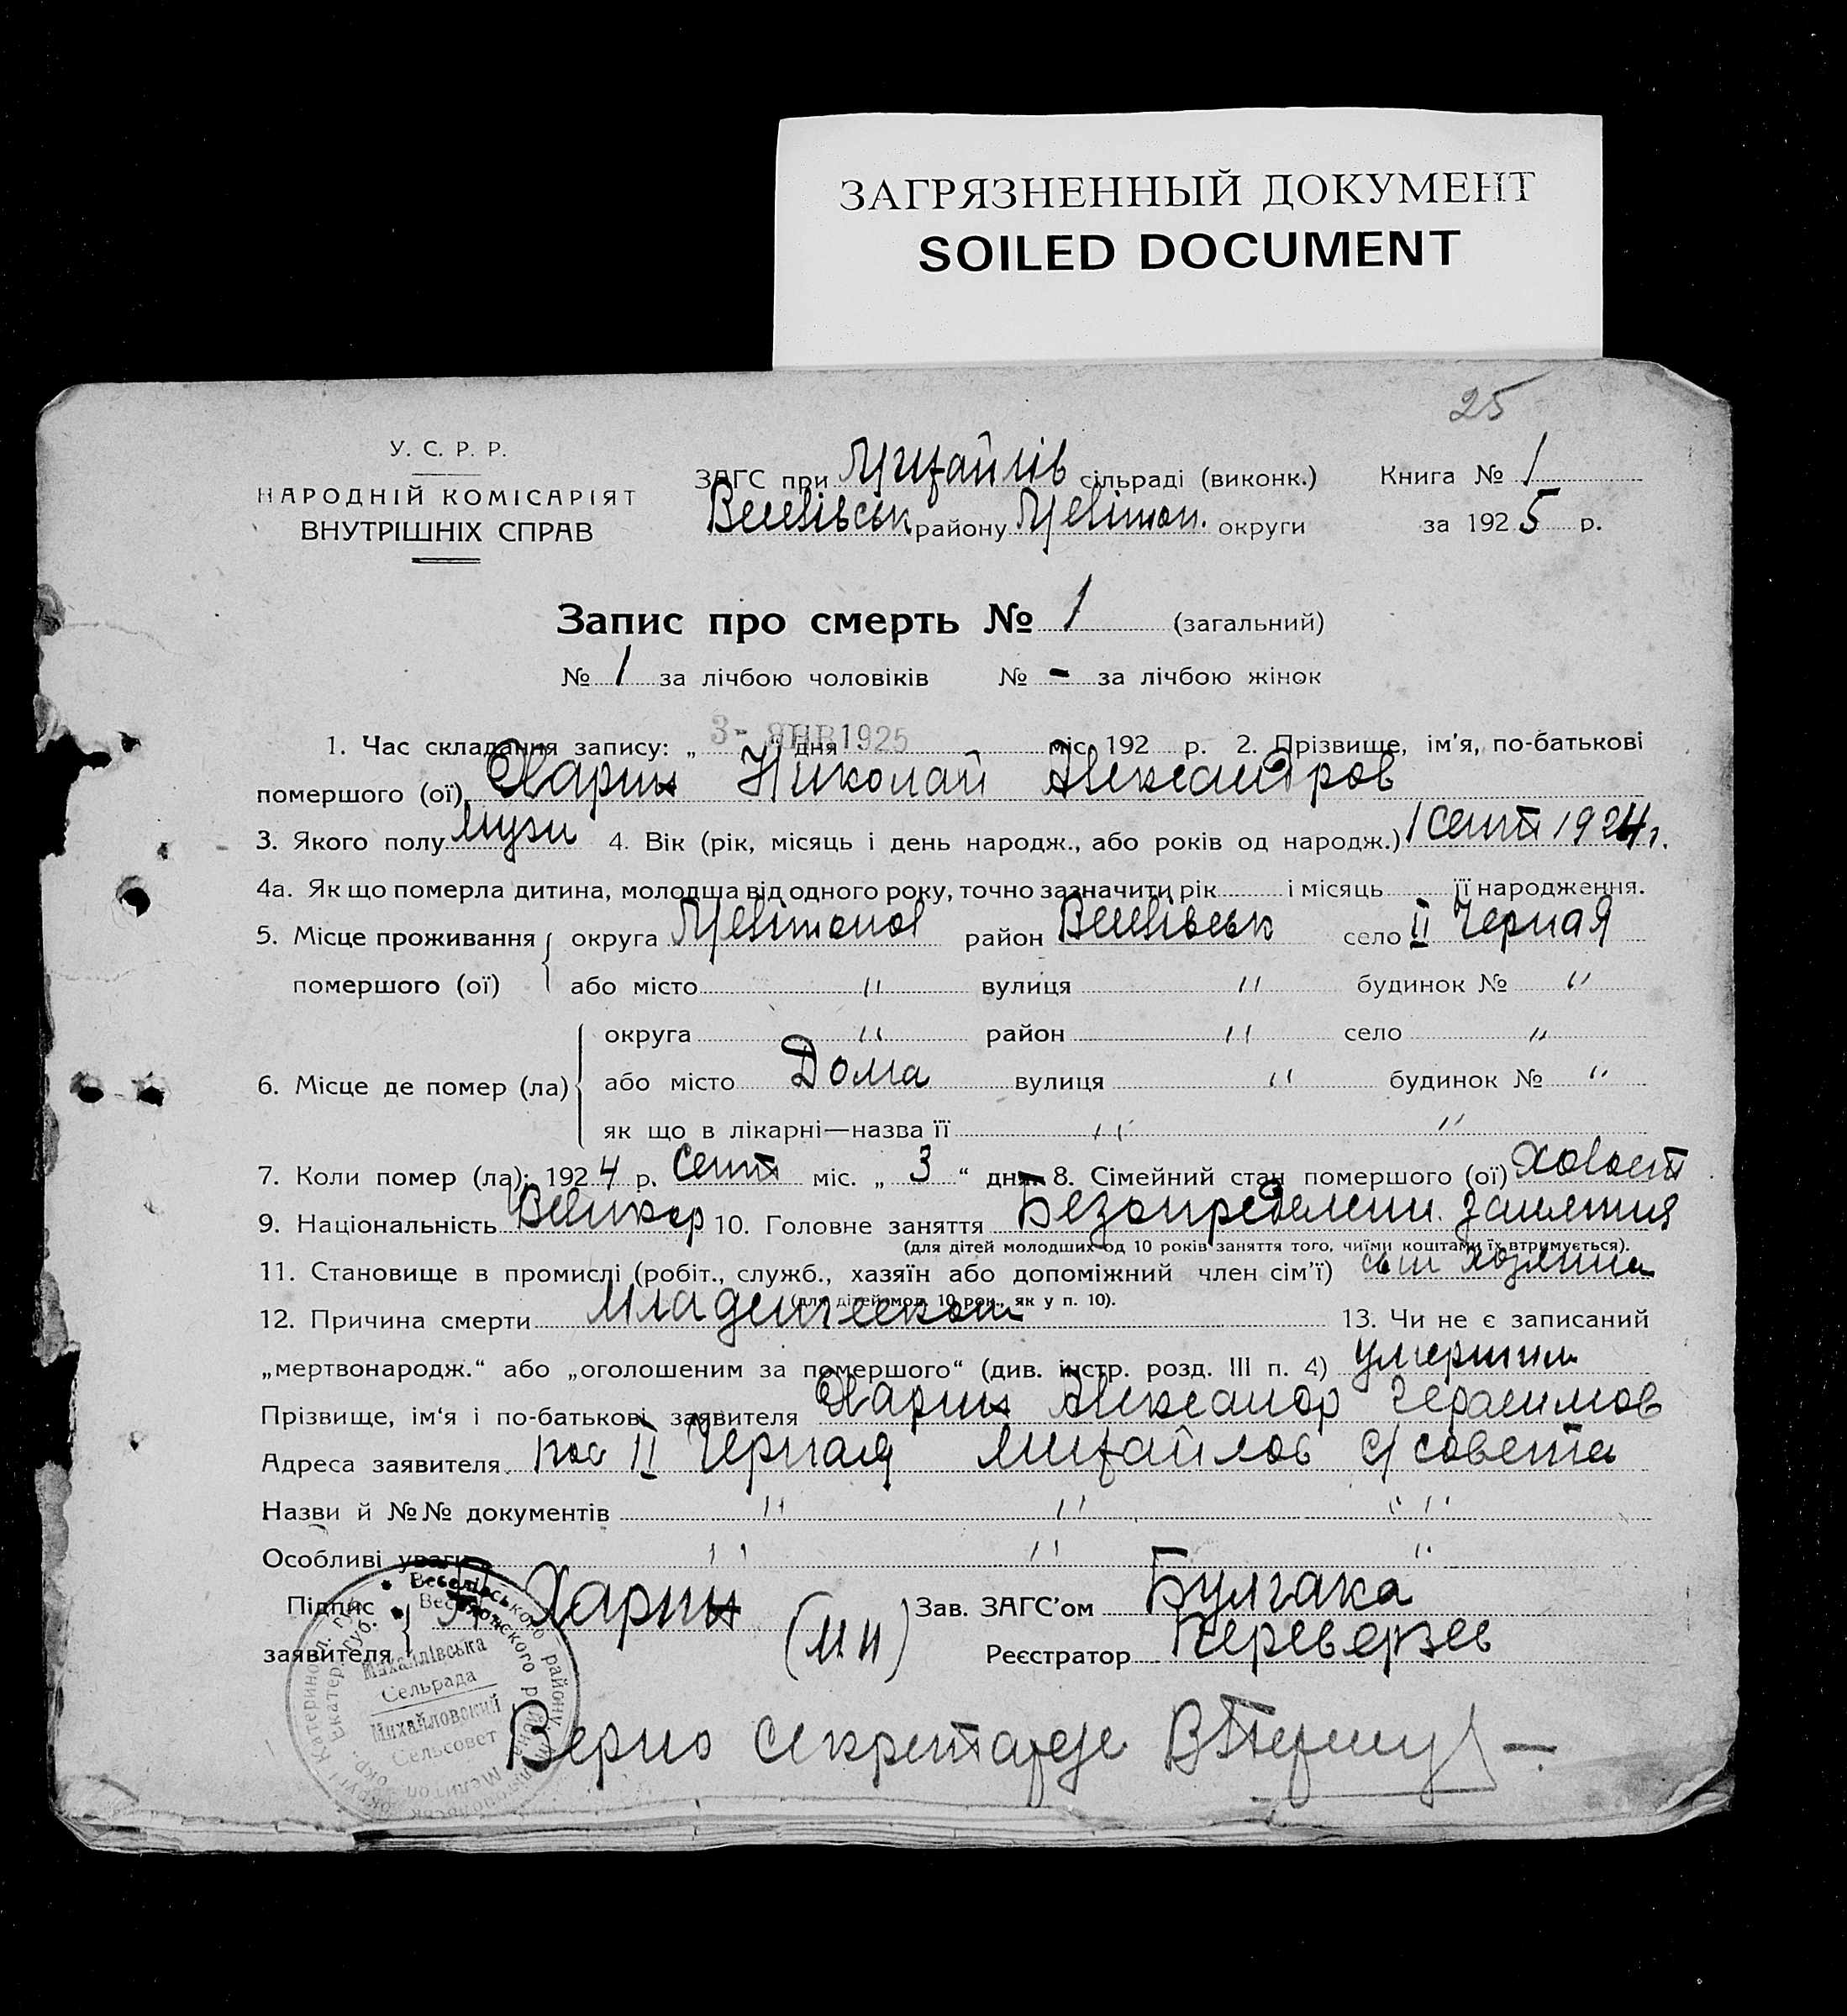 ЗАГРЯЗНЕННЫЙ ДОКУМЕНТ
SOILED DOCUMENT
25
У. С. Р. Р.
НАРОДНІЙ КОМІСАРІЯТ
ВНУТРІШНІХ СПРАВ
ЗАГС при Михайлів сільраді (виконк.) Книга № 1
Веселівськ району Мелітоп. округи за 1925 р.
Запис про смерть № 1 (загальний)
№ 1 за лічбою чоловіків № - за лічбою жінок
1. Час складання запису: „ 3 - ЯНВ 1925 “ дня міс. 192 р. 2. Прізвище, ім'я, по-батькові
помершого (ої) Харин Николай Александров
3. Якого полу мужи 4. Вік (рік, місяць і день народж., або років од народж.) 1 Сент 1924 г.
4а. Як що померла дитина, молодша від одного року, точно зазначити рік і місяць її народження.
5. Місце проживання округа Мелітопол район Веселівськ село II Черная
помершого (ої) або місто " вулиця " будинок № "
округа " район " село "
6. Місце де помер (ла) або місто Дома вулиця " будинок № "
як що в лікарні—назва її " "
7. Коли помер (ла): 1924 р. Сент міс. „ 3 “ дня 8. Сімейний стан помершого (ої) Холост
9. Національність Великор 10. Головне заняття Безопределени. Занятия
(для дітей молодших од 10 років заняття того, чиїми коштами їх втримується).
11. Становище в промислі (робіт., служб., хазяїн або допоміжний член сім'ї) сын хозяина
(для дітей мол. 10 рок., як у п. 10).
12. Причина смерти Младенческая 13. Чи не є записаний
„мертвонародж.“ або „оголошеним за помершого“ (див. інстр. розд. III п. 4) умершим
Прізвище, ім'я і по-батькові заявителя Харин Александр Герасимов
Адреса заявителя пос II Черная Михайлов с/совета
Назви й №№ документів " " "
Особливі уваги " " "
Підпис заявителя Харин (МП) Зав. ЗАГС'ом Булгака
Реєстратор Переверзев
Веселівського району
Михайлівська
Сельрада
Михайловский
Сельсовет
Верно Секретарь